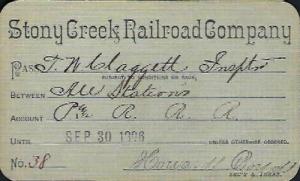 Stony Creek Railroad Company
PASS T. W. Claggett Inspr
SUBJECT TO CONDITIONS ON BACK,
BETWEEN All Stations
ACCOUNT P& R. R. R.
UNTIL SEP 30 1906 UNLESS OTHERWISE ORDERED.
No. 38
SEC'Y & TREAS.